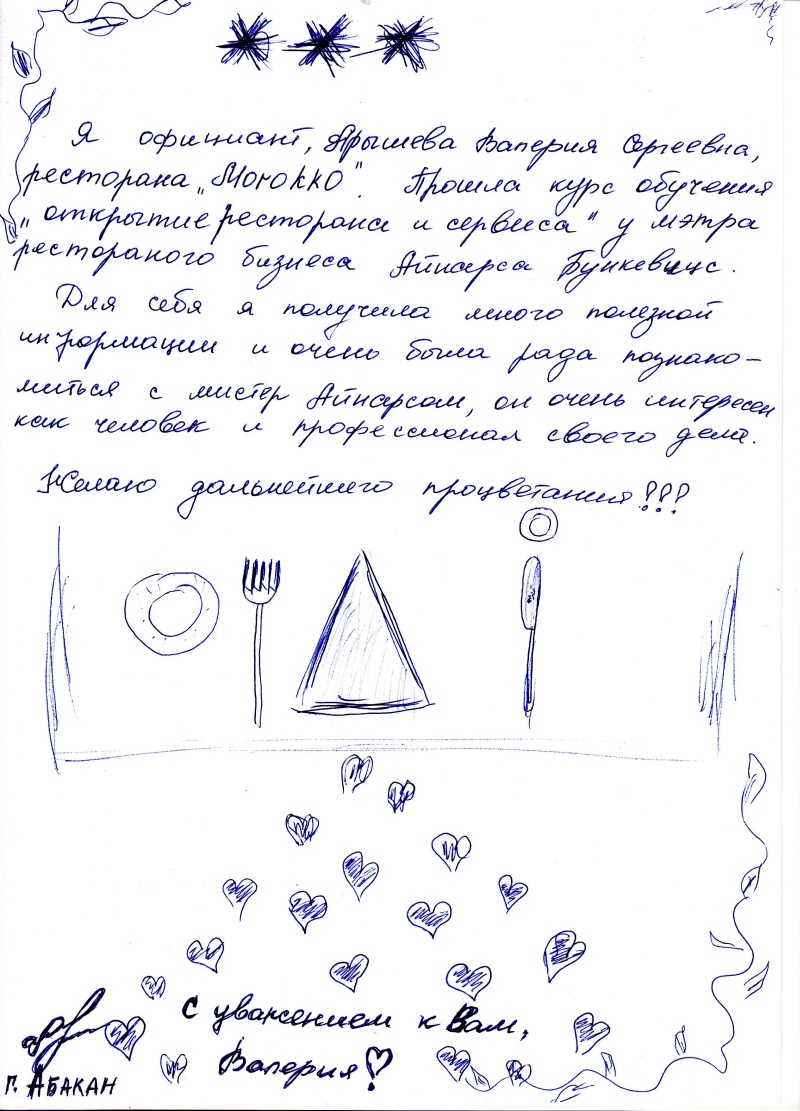 Я официант, Арышева Валерия Сергеевна,
ресторана „Morokko". Прошла курс обучения
„открытие ресторана и сервиса" у мэтра
рестораного бизнеса Айнарса Бункевицс.
Для себя я получила много полезной
информации и очень была рада познако-
миться с мистер Айнарсом, он очень интересен
как человек и профессионал своего дела.
Желаю дальнейшего процветания!!!
С уважением к Вам,
Валерия!
г. Абакан